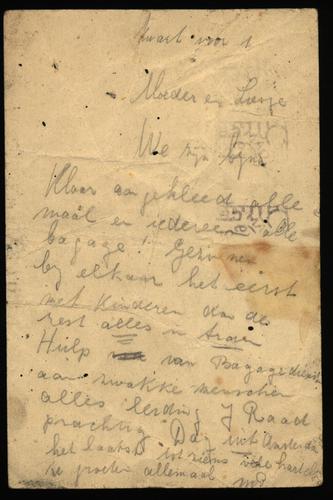 Kwart voor 1
Moeder en
We zijn bijna
Klaar aangekleed alle
maal en iedereen alle
bagage! Gezinnen
bij elkaar het eerst
met kinderen dan de
rest alles in
Hulp van Bagagedienst
aan zwakke menschen
alles leiding J Raad
prachtig Dag uit Amsterdam
het laatst tot ziens hartel
te groeten allemaal